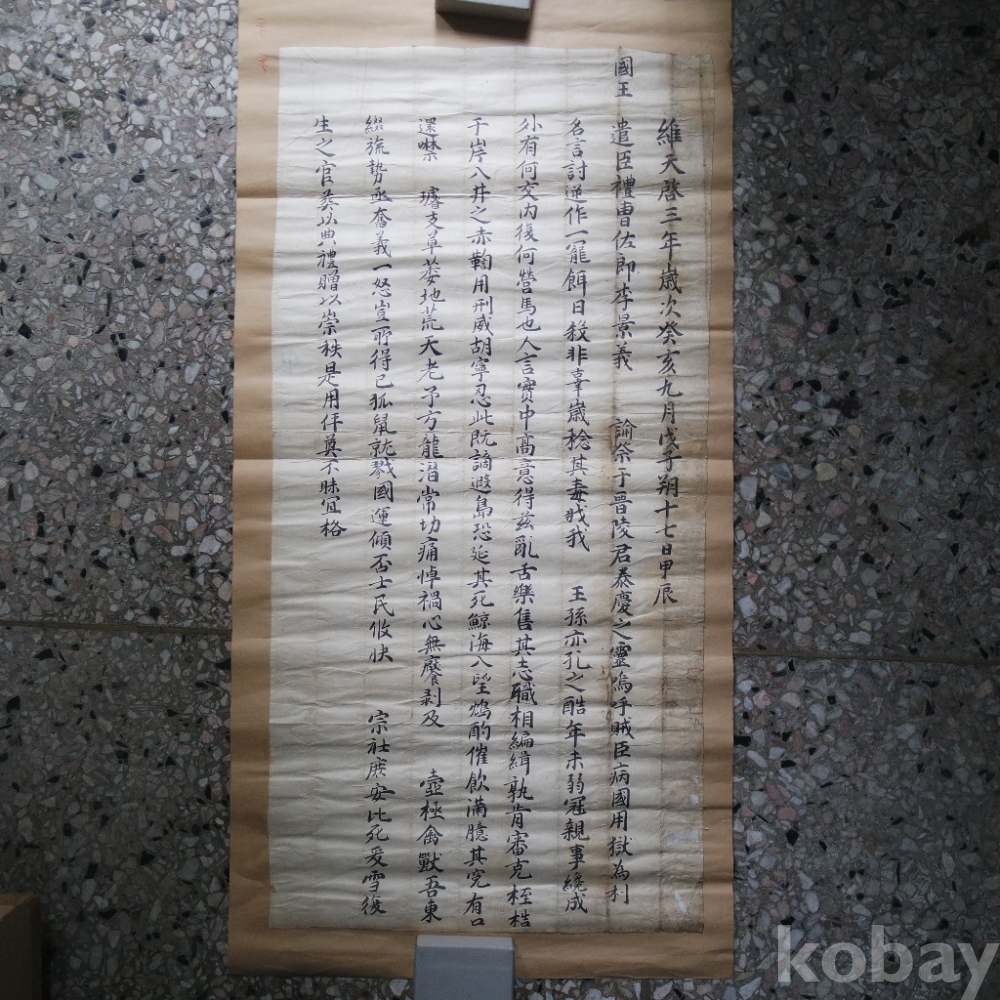 維天啓三年歲次癸亥九月戊子朔十七日甲辰
國王
遣臣禮曹佐郎李景義 諭祭于晉陵君泰慶之靈嗚呼賊臣病國用獄為利
名言討逆作一寵餌日殺非辜歲稔其毒戕我 王孫亦孔之酷年未弱冠親事纔成
外有何交內復何營馬也人言實中高意得玆亂舌樂售其志職相編緝孰肯審克桎梏
千岸八井之赤鞫用刑威胡寧忍此既謫遐島恐延其死鯨海八望鴆酌催飮滿臆其寃有口
還噤 璿支草萎地荒天老予方龍潛常切痛悼禍心無饜剝及 壼極禽獸吾東
綴旒勢亟奮義一怒豈所得已狐鼠就戮國運傾否士民攸快 宗社庶安比死爰雪復
生之官葬以典禮贈以崇秩是用伻奠不昧宜格
kobay